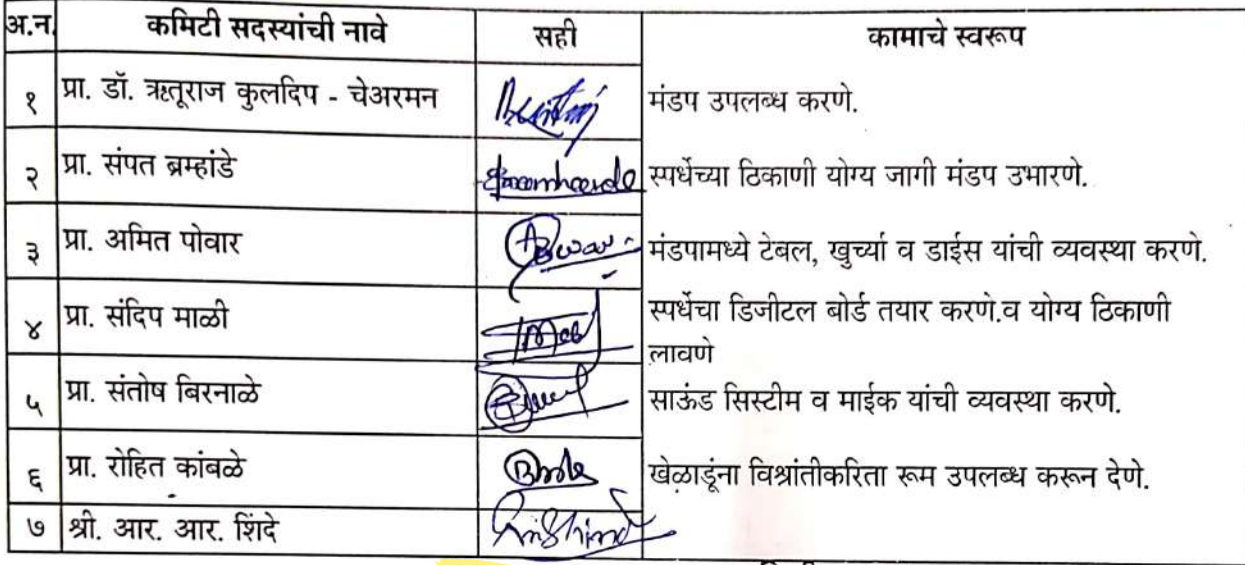 अ.न. कमिटी सदस्यांची नावे सही कामाचे स्वरूप
१ प्रा. डॉ. ऋतूराज कुलदिप - चेअरमन मंडप उपलब्ध करणे.
२ प्रा. संपत ब्रम्हांडे स्पर्धेच्या ठिकाणी योग्य जागी मंडप उभारणे.
३ प्रा. अमित पोवार मंडपामध्ये टेबल, खुर्च्या व डाईस यांची व्यवस्था करणे.
४ प्रा. संदिप माळी स्पर्धेचा डिजीटल बोर्ड तयार करणे.व योग्य ठिकाणी
लावणे
५ प्रा. संतोष बिरनाळे साऊंड सिस्टीम व माईक यांची व्यवस्था करणे.
६ प्रा. रोहित कांबळे खेळाडूंना विश्रांतीकरिता रूम उपलब्ध करून देणे.
७ श्री. आर. आर. शिंदे